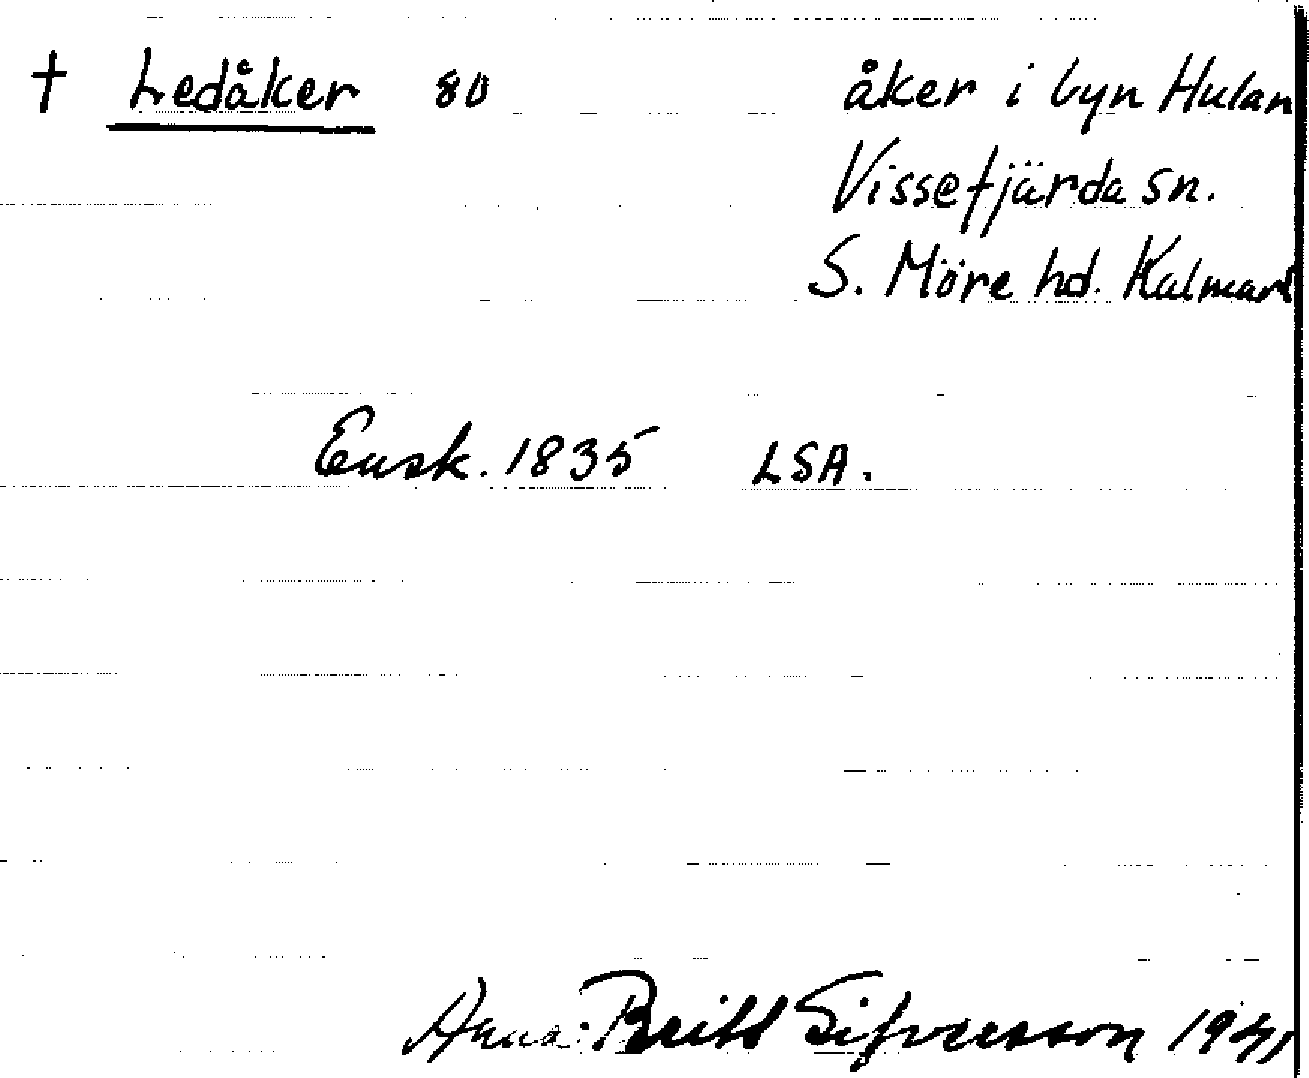 † Ledåker 80 åker i byn Hulan
Vissefjärda sn.
S. Möre hd. Kalmar
Ensk. 1835 LSA.
Anna-Britt Sifversson